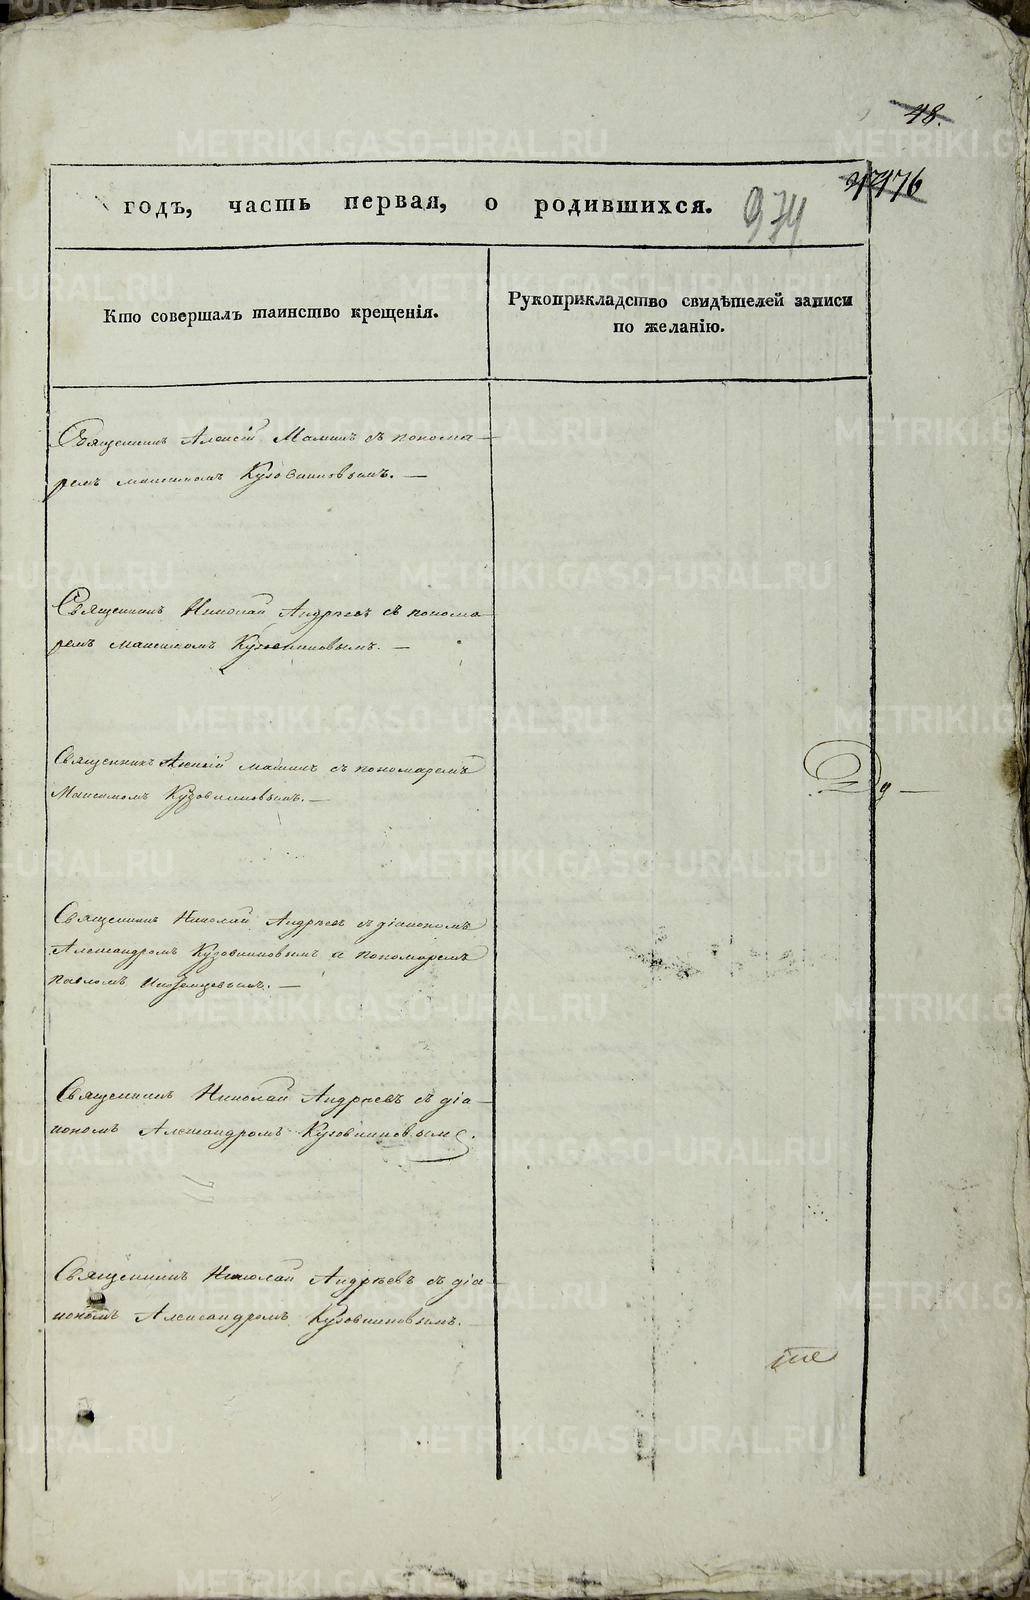 48.
476
годъ, часть первая, о родившихся. 974
Кто совершалъ таинство крещенія.
Рукоприкладство свидѣтелей записи
по желанію.
Священникъ Алексій Маминъ съ понома-
ремъ максимомъ Кузовниковымъ. —
Священникъ Николай Андрѣевъ съ понома
ремъ максимомъ Кузовниковымъ. —
Священникъ Алексій маминъ съ пономаремъ
Максимомъ Кузовниковымъ. —
Священникъ Николай Андрѣевъ съ діакономъ
Александромъ Кузовниковымъ и пономаремъ
павломъ Иноземцевымъ. —
Священникъ Николай Андрѣевъ съ діа-
кономъ Александромъ Кузовниковымъ.
Священникъ Николай Андрѣевъ съ діа-
кономъ Александромъ Кузовниковымъ.
METRIKI.GASO-URAL.RU